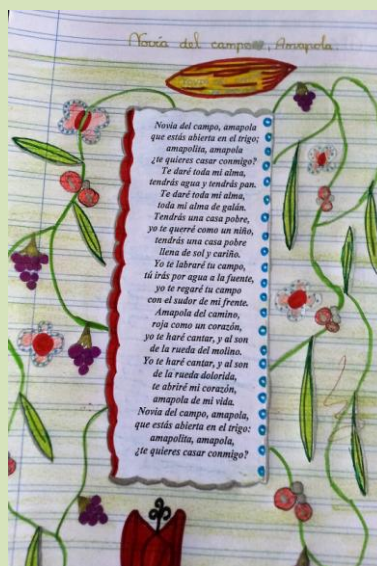 Novia del campo, Amapola.
Novia del campo, amapola
que estás abierta en el trigo;
amapolita, amapola
¿te quieres casar conmigo?
Te daré toda mi alma,
tendrás agua y tendrás pan.
Te daré toda mi alma,
toda mi alma de galán.
Tendrás una casa pobre,
yo te querré como un niño,
tendrás una casa pobre
llena de sol y cariño.
Yo te labraré tu campo,
tú irás por agua a la fuente,
yo te regaré tu campo
con el sudor de mi frente.
Amapola del camino,
roja como un corazón,
yo te haré cantar, y al son
de la rueda del molino.
Yo te haré cantar, y al son
de la rueda dolorida,
te abriré mi corazón,
amapola de mi vida.
Novia del campo, amapola,
que estás abierta en el trigo:
amapolita, amapola,
¿te quieres casar conmigo?